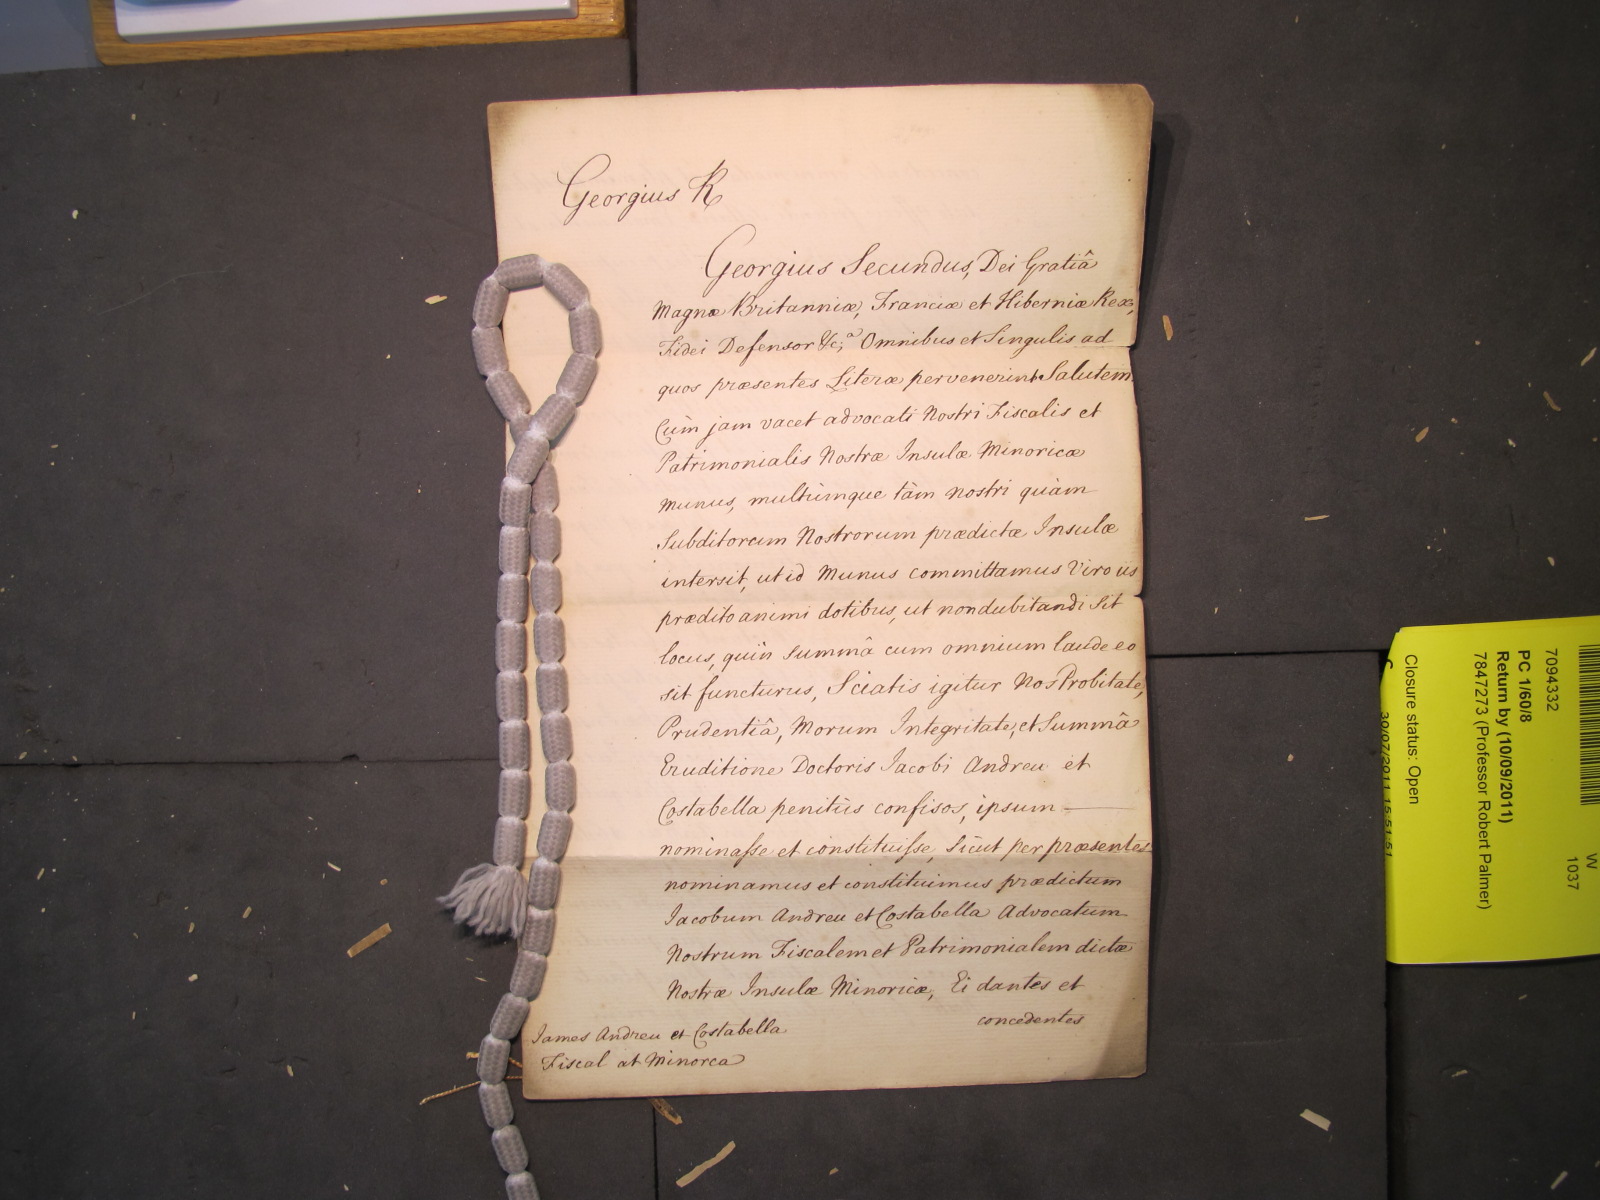 Georgius R
Georgius Secundus, Dei Gratiâ
Magnæ Britanniæ, Franciæ et Hiberniæ Rex,
Fidei Defensor &c;ª Omnibus et Singulis ad
quos præsentes Literæ pervenerint Salutem.
Cùm jam vacet advocati Nostri Fiscalis et
Patrimonialis Nostræ Insulæ Minoricæ
Munus, multùmque tàm nostri quàm
Subditorum Nostrorum prædictæ Insulæ
intersit, ut id Munus committamus Viro iis
prædito animi dotibus, ut non dubitandi Sit
locus, quin Summâ cum omnium laude eo
sit functurus, Sciatis igitur Nos Probitate,
Prudentiâ, Morum Integritate, et Summâ
Eruditione Doctoris Iacobi Andreu et
Costabella penitùs confisos, ipsum
nominaſse et constituiſse, Sicut per præsentes
nominamus et constituimus prædictum
Iacobum Andreu et Costabella Advocatum
Nostrum Fiscalem et Patrimonialem dictæ
Nostræ Insulæ Minoricæ, Ei dantes et
concedentes
James Andreu et Costabella
Fiscal at Minorca
W
1037
7094332
PC 1/60/8
Return by (10/09/2011)
7847273 (Professor Robert Palmer)
Closure status: Open
30/07/2011 15:51:51